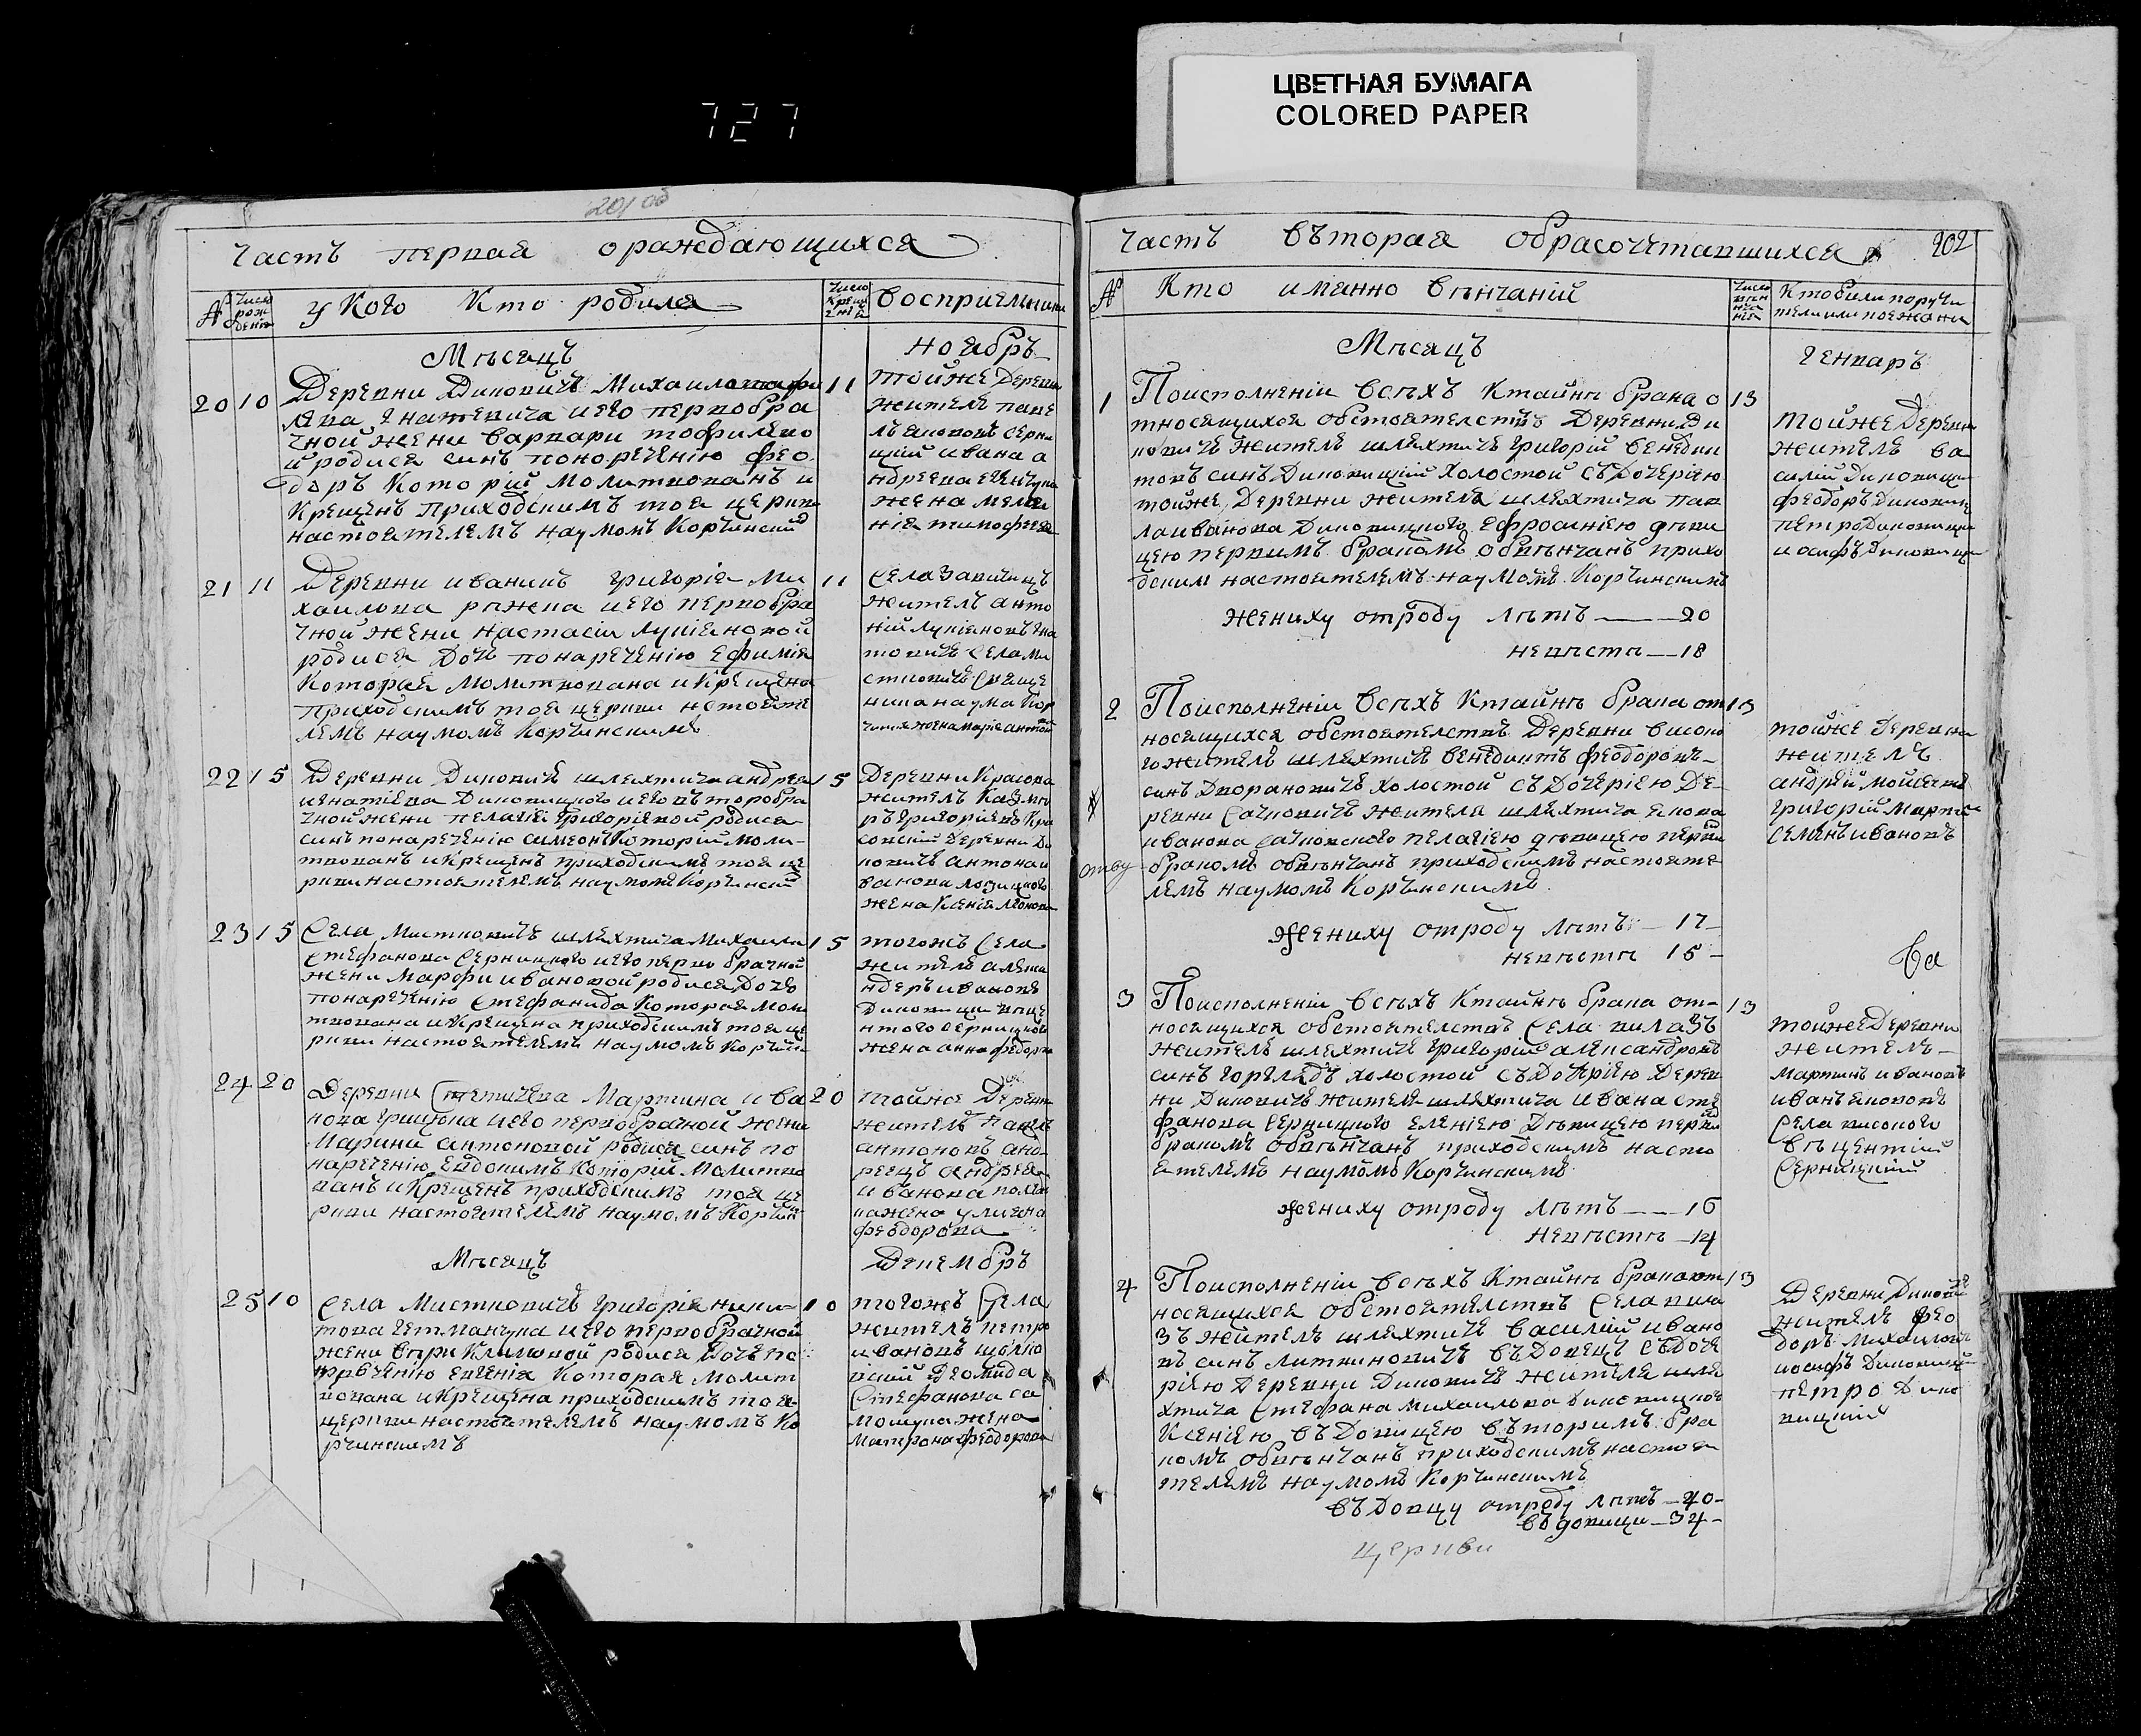 727
ЦВЕТНАЯ БУМАГА
COLORED PAPER
201 об
Часть первая ораждающихся
№
Число рождения
У Кого Кто родился
Число крещений
Восприемники
Мѣсяцъ
Ноябръ
20
10
Деревни Диковичъ Михаила
Игнатевича иего первобра
чной жени варвари тофилево
й родися синъ понаречению фео
доръ Которій молитвованъ и
Крещенъ Приходскимъ тоя церкви
настоятелемъ наумомъ Корчинский
11
тойже Деревни
жителъ паве
лъ яковов серни
цкий ивана а
ндреева
жена мела
ния тимофеева
21
11
Деревни иваникъ григорія Ми
хаилова ражена иего первобра
чной жени настасіи лукіяновой
родися дочъ понаречению Ефимія
Которая молитвована и Крещена
приходскимъ тоя церкви настояте
лемъ наумомъ Корчинскимъ
11
Села Завитицъ
жителъ анто
ній лукіяновъ
Села ми
стковичъ свяще
ника наума Кор
чинск жена марія антон
22
15
Деревни Диковичъ шляхтича андрея
игнатіева Диковицкого иего второбра
чной жени пелагеи григоріевой родися
синъ понаречению симеонъ Которій моли
твованъ и Крещенъ приходскимъ тоя це
ркви настоятелемъ наумомъ Корчинский
15
Деревни Красова
жителъ Казми
ръ григоріевъ Кра
совский деревни Ди
ковичъ антона и
ванова лозицкого
жена Ксенія леонова
23
15
Села Мистковичъ шляхтича Михаила
Стефанова Серницкого иего первобрачной
жени Марфи ивановой родися дочъ
понаречению Стефанида Которая моли
твована и Крещена приходскимъ тоя це
ркви настоятелемъ наумомъ Корчин
15
тогожъ Села
жителъ алекса
ндеръ ивановъ
Диковицки вице
нтого серницкого
жена анна федорова
24
20
Деревни Стетичева Мартина ива
нова грицука иего первобрачной жени
Марини антоновой родися синъ по
наречению Евдокимъ Которій Молитво
ванъ и Крещенъ приходскимъ тоя це
ркви настоятелемъ наумомъ Корчин
20
тойже Деревни
жителъ павелъ
антоновъ анд
реецъ андрея
иванова
жена улияна
феодорова
Мѣсяцъ
Декемвръ
25
10
Села Мистковичъ григорія ники
това гетманчука иего первобрачной
жени Климовой родися дочъ по
наречению Евгенія Которая молит
вована и Крещена приходскимъ тоя
церкви настоятелемъ наумомъ Ко
рчинскимъ
10
тогожъ Села
жителъ петро
ивановъ
Демида
Стефанова са
мошука жена
Матрона феодорова
Часть въторая обрасочетавшихся
202
№
Кто иманно вѣнчаній
Число вѣнчания
Кто били поручи
тели или поежани
Мѣсяцъ
Генваръ
1
Поисполненіи всѣхъ Ктайнѣ брака о
тносящихся обстоятелствъ Деревни Ди
ковичъ жителъ шляхтичъ григорій венедик
товъ синъ Диковицкий холостой съ дочерію
тойже Деревни жителя шляхтича пав
ла иванова Диковицкого Ефросинією дѣви
цею первимъ бракомъ обвѣнчанъ прихо
дским настоятелемъ наумомъ Корчинскимъ
Жениху отроду лѣтъ — 20
невѣстѣ — 18
13
тойже Деревни
жителъ ва
силій Диковицки
феодоръ Диковицк
петро Диковицки
иосифъ Диковицк
2
Поисполненіи всѣхъ Ктайнѣ брака от
носящихся обстоятелствъ Деревни високо
го жителъ шляхтичъ венедиктъ феодоровъ
синъ Дворановичъ холостой съ дочерією Де-
ревни Сачковичъ жителя шляхтича якова
иванова Сачковского пелагією дѣвицею первим
бракомъ обвѣнчанъ приходскимъ настояте
лемъ наумомъ Корчинскимъ
Жениху отроду лѣтъ — 17
невѣстѣ 15
13
тойже деревни
жителъ
андрѣй мойсеевъ
григорій мартин
семенъ ивановъ
3
Поисполненіи всѣхъ Ктайнѣ брака от-
носящихся обстоятелствъ Села вилазъ
жителъ шляхтичъ григорій александровъ
синъ горегладъ холостой съ дочерією Дерев
ни Диковичъ жителя шляхтича ивана сте
фанова Серницкого Еленією Дѣвицею первим
бракомъ обвѣнчанъ приходскимъ насто
ятелемъ наумомъ Корчинскимъ
Жениху отроду лѣтъ — 16
невѣстѣ — 14
13
тойже Деревни
жителъ
Мартинъ ивановъ
иванъ якововъ
Села високого
въцентій
Серницкий
4
Поисполненіи всѣхъ Ктайнѣ брака от
носящихся обстоятелствъ Села вила
зъ жителъ шляхтичъ василій ивано
въ синъ литвиновичъ въдовецъ съ доче
рією Деревни Диковичъ жителя шля
хтича Стефана михаилова диковицкого
Ксенією въдовицею въторимъ бра
комъ обвѣнчанъ приходскимъ настоя
телемъ наумомъ Корчинскимъ
въдовцу отроду лѣтъ — 40
въдовици — 34
13
Деревни Дикович
жителъ фео
доръ михаиловъ
иосифъ Диковицкий
петро Дико
вицкий
церкви